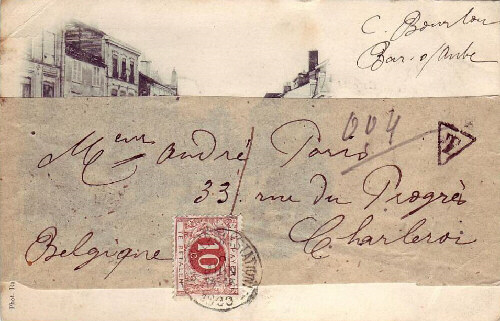 C. Bourlon
Bar-s/Aube
604
T
Mens André Paris
33 rue du Progrès
Charleroi
Belgique
10
Phot.